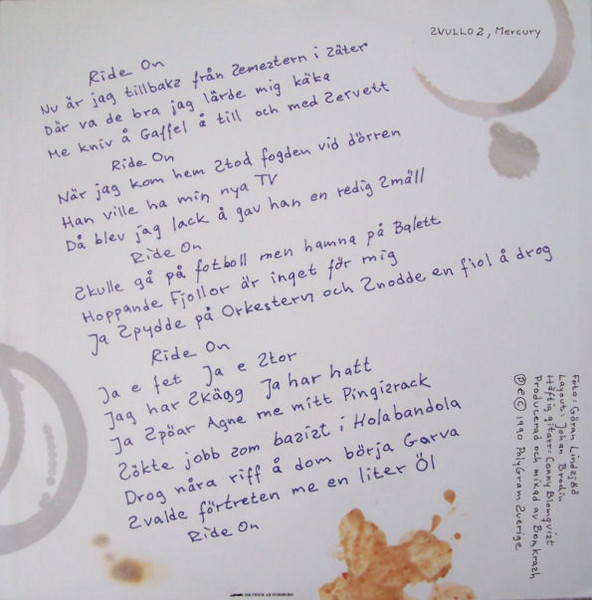 2VULLO 2, Mercury
Ride On
Nu är jag tillbakz från 2eme2tern i 2äter
Där va de bra jag lärde mig käka
Me kniv å Gaffel å till och med 2ervett
Ride On
När jag kom hem 2tod fogden vid dörren
Han ville ha min nya TV
Då blev jag lack å gav han en redig 2mäll
Ride On
2kulle gå på fotboll men hamna på Balett
Hoppande Fjollor är inget för mig
Ja 2pydde på Orke2tern och 2nodde en fiol å drog
Ride On
Ja e fet Ja e 2tor
Jag har 2kägg Ja har hatt
Ja 2pöar Agne me mitt Pingi2rack
2ökte jobb 2om ba2i2t i Holabandola
Drog nåra riff å dom börja Garva
2valde förtreten me en liter Öl
Ride On
Foto: Göran Lind2jöö
Layout: Johan Brodin
Häftig gitarr: Conny Blomqvi2t
Producerad och mixad av Bonkra2h
Ⓟ e © 1990 PolyGram 2verige